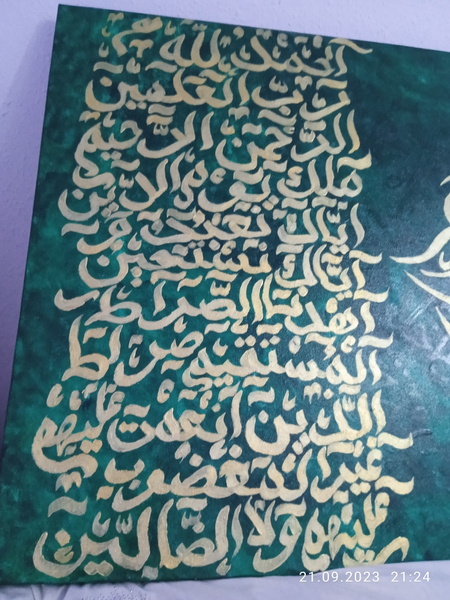 الحمد لله
رب العلمين
الرحمن الرحيم
ملك يوم الدين
اياك نعبد و
اياك نستعين
اهدنا الصراط
المستقيم صراط
الذين انعمت عليهم
غير المغضوب
عليهم ولا الضالين
21.09.2023 21:24